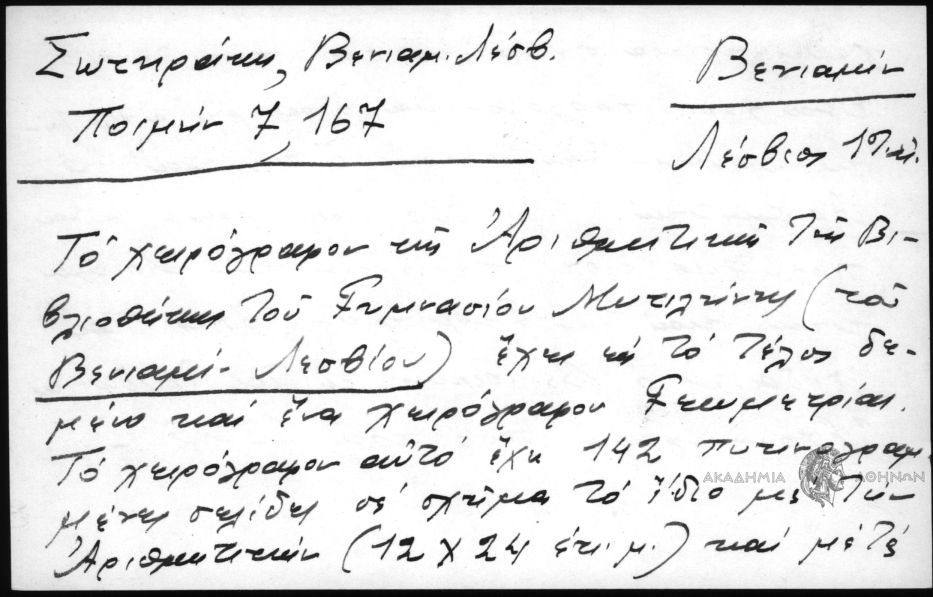 Σωτηράκη, Βενιαμ. Λέσβ.
Ποιμήν 7, 167
Βενιαμίν
Λέσβιος
Τό χειρόγραφον τῆς Ἀριθμητικῆς τῆς Βι-
βλιοθήκης τοῦ Γυμνασίου Μυτιλήνης (τοῦ
Βενιαμίν Λεσβίου) ἔχει εἰς τό τέλος δε-
μένο καί ἕνα χειρόγραφον Γεωμετρίας.
Τό χειρόγραφον αὐτό ἔχει 142 πυκνογραμ-
μένες σελίδες σέ σχῆμα τό ἴδιο μέ τήν
Ἀριθμητικήν (12 Χ 24 ἑκ. μ.) καί μέ τό
ΑΚΑΔΗΜΙΑ ΑΘΗΝΩΝ